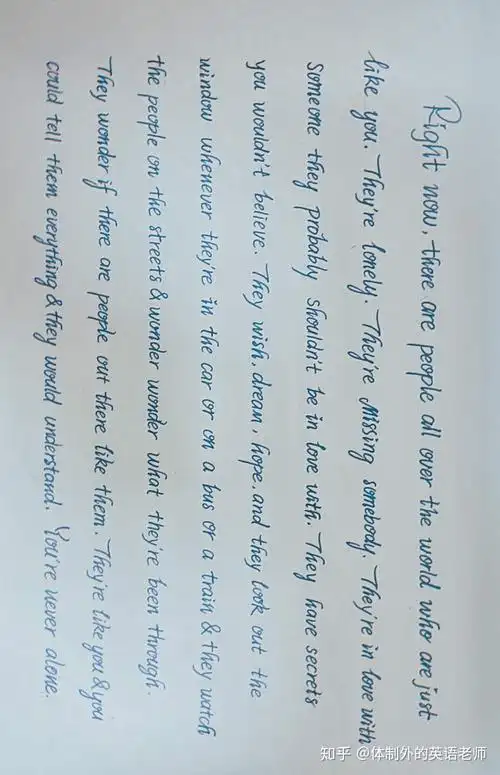 Right now, there are people all over the world who are just
like you. They're lonely. They're missing somebody. They're in love with
someone they probably shouldn't be in love with. They have secrets
you wouldn't believe. They wish, dream, hope, and they look out the
window whenever they're in the car or on a bus or a train & they watch
the people on the streets & wonder wonder what they're been through.
They wonder if there are people out there like them. They're like you & you
could tell them everything & they would understand. You're never alone.
知乎 @体制外的英语老师